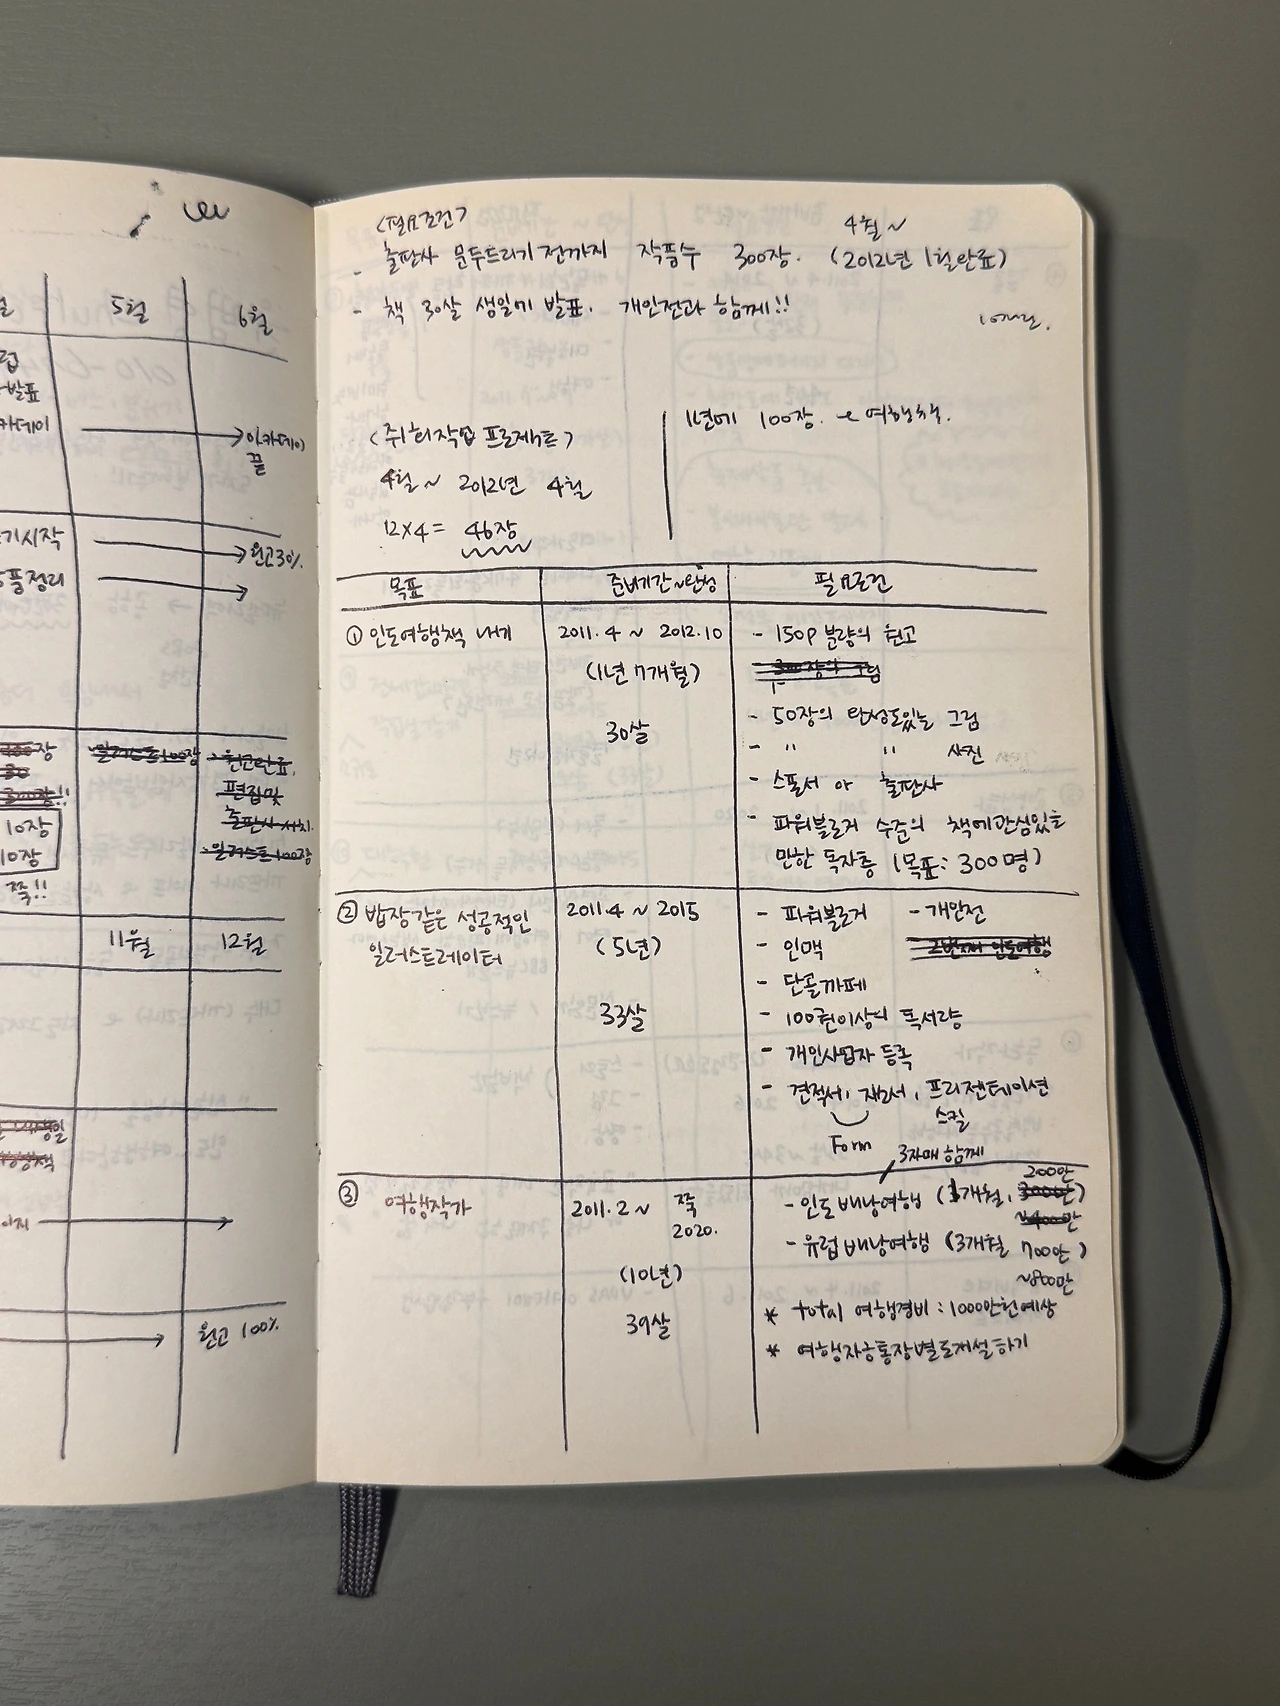 5월
6월
발표
카데미
아카데미
끝
기시작
원고30%
품정리
10장
10장
쭉!!
11월
12월
원고 100%
<필요조건>
4월 ~
- 출판사 문두드리기 전까지 작품수 300장. (2012년 1월 완료)
- 책 30살 생일에 발표. 개인전과 함께!!
1년에 100장.
여행책.
4월 ~ 2012년 4월
12x4= 46장
목표
준비기간~완성
필요조건
① 인도여행책 내기
2011.4 ~ 2012.10
(1년 7개월)
30살
- 150p 분량의 원고
- 50장의 완성도있는 그림
- " " 사진
- 스폰서 or 출판사
- 파워블로거 수준의 책에관심있을
만한 독자층 (목표: 300명)
② 밥장같은 성공적인
일러스트레이터
2011.4 ~ 2015
(5년)
33살
- 파워블로거 - 개인전
- 인맥
- 단골까페
- 100권이상의 독서량
- 개인사업자 등록
- 견적서, 프리젠테이션
스킬
Form
③ 여행작가
2011.2 ~ 쭉
2020.
(10년)
39살
3자매 함께
200만
- 인도배낭여행
- 유럽배낭여행 (3개월 700만)
~800만
* total 여행경비: 1000만원예상
* 여행자금통장별도개설하기